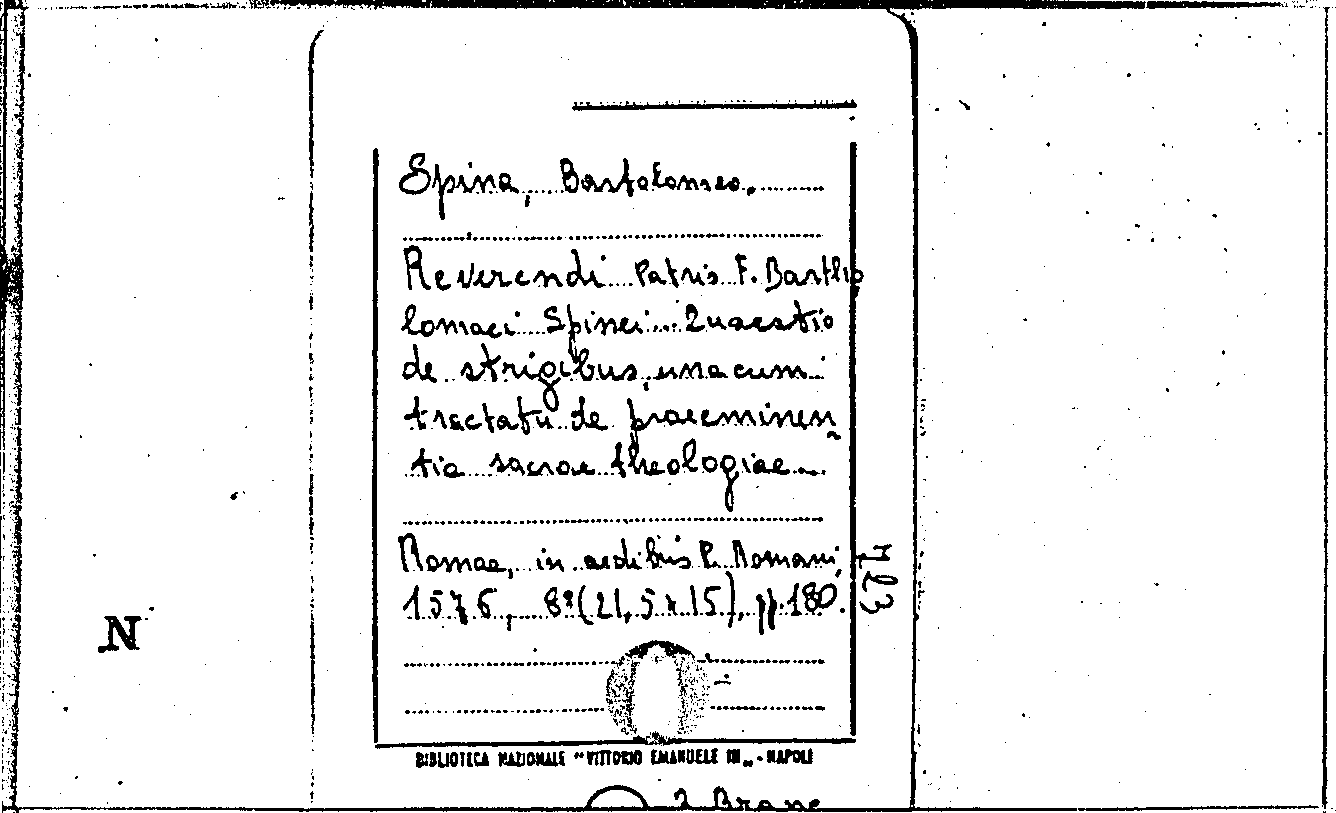 Spina, Bartolomeo.
Reverendi Patris F. Bartho
lomaei Spinei... Quaestio
de strigibus, una cum
tractatu de praeeminen
tia sacrae theologiae...
Romae, in aedibus P. Romani,
1576, 8º (21,5 x 15), pp. 180.
N
BIBLIOTECA NAZIONALE "VITTORIO EMANUELE III„ - NAPOLI